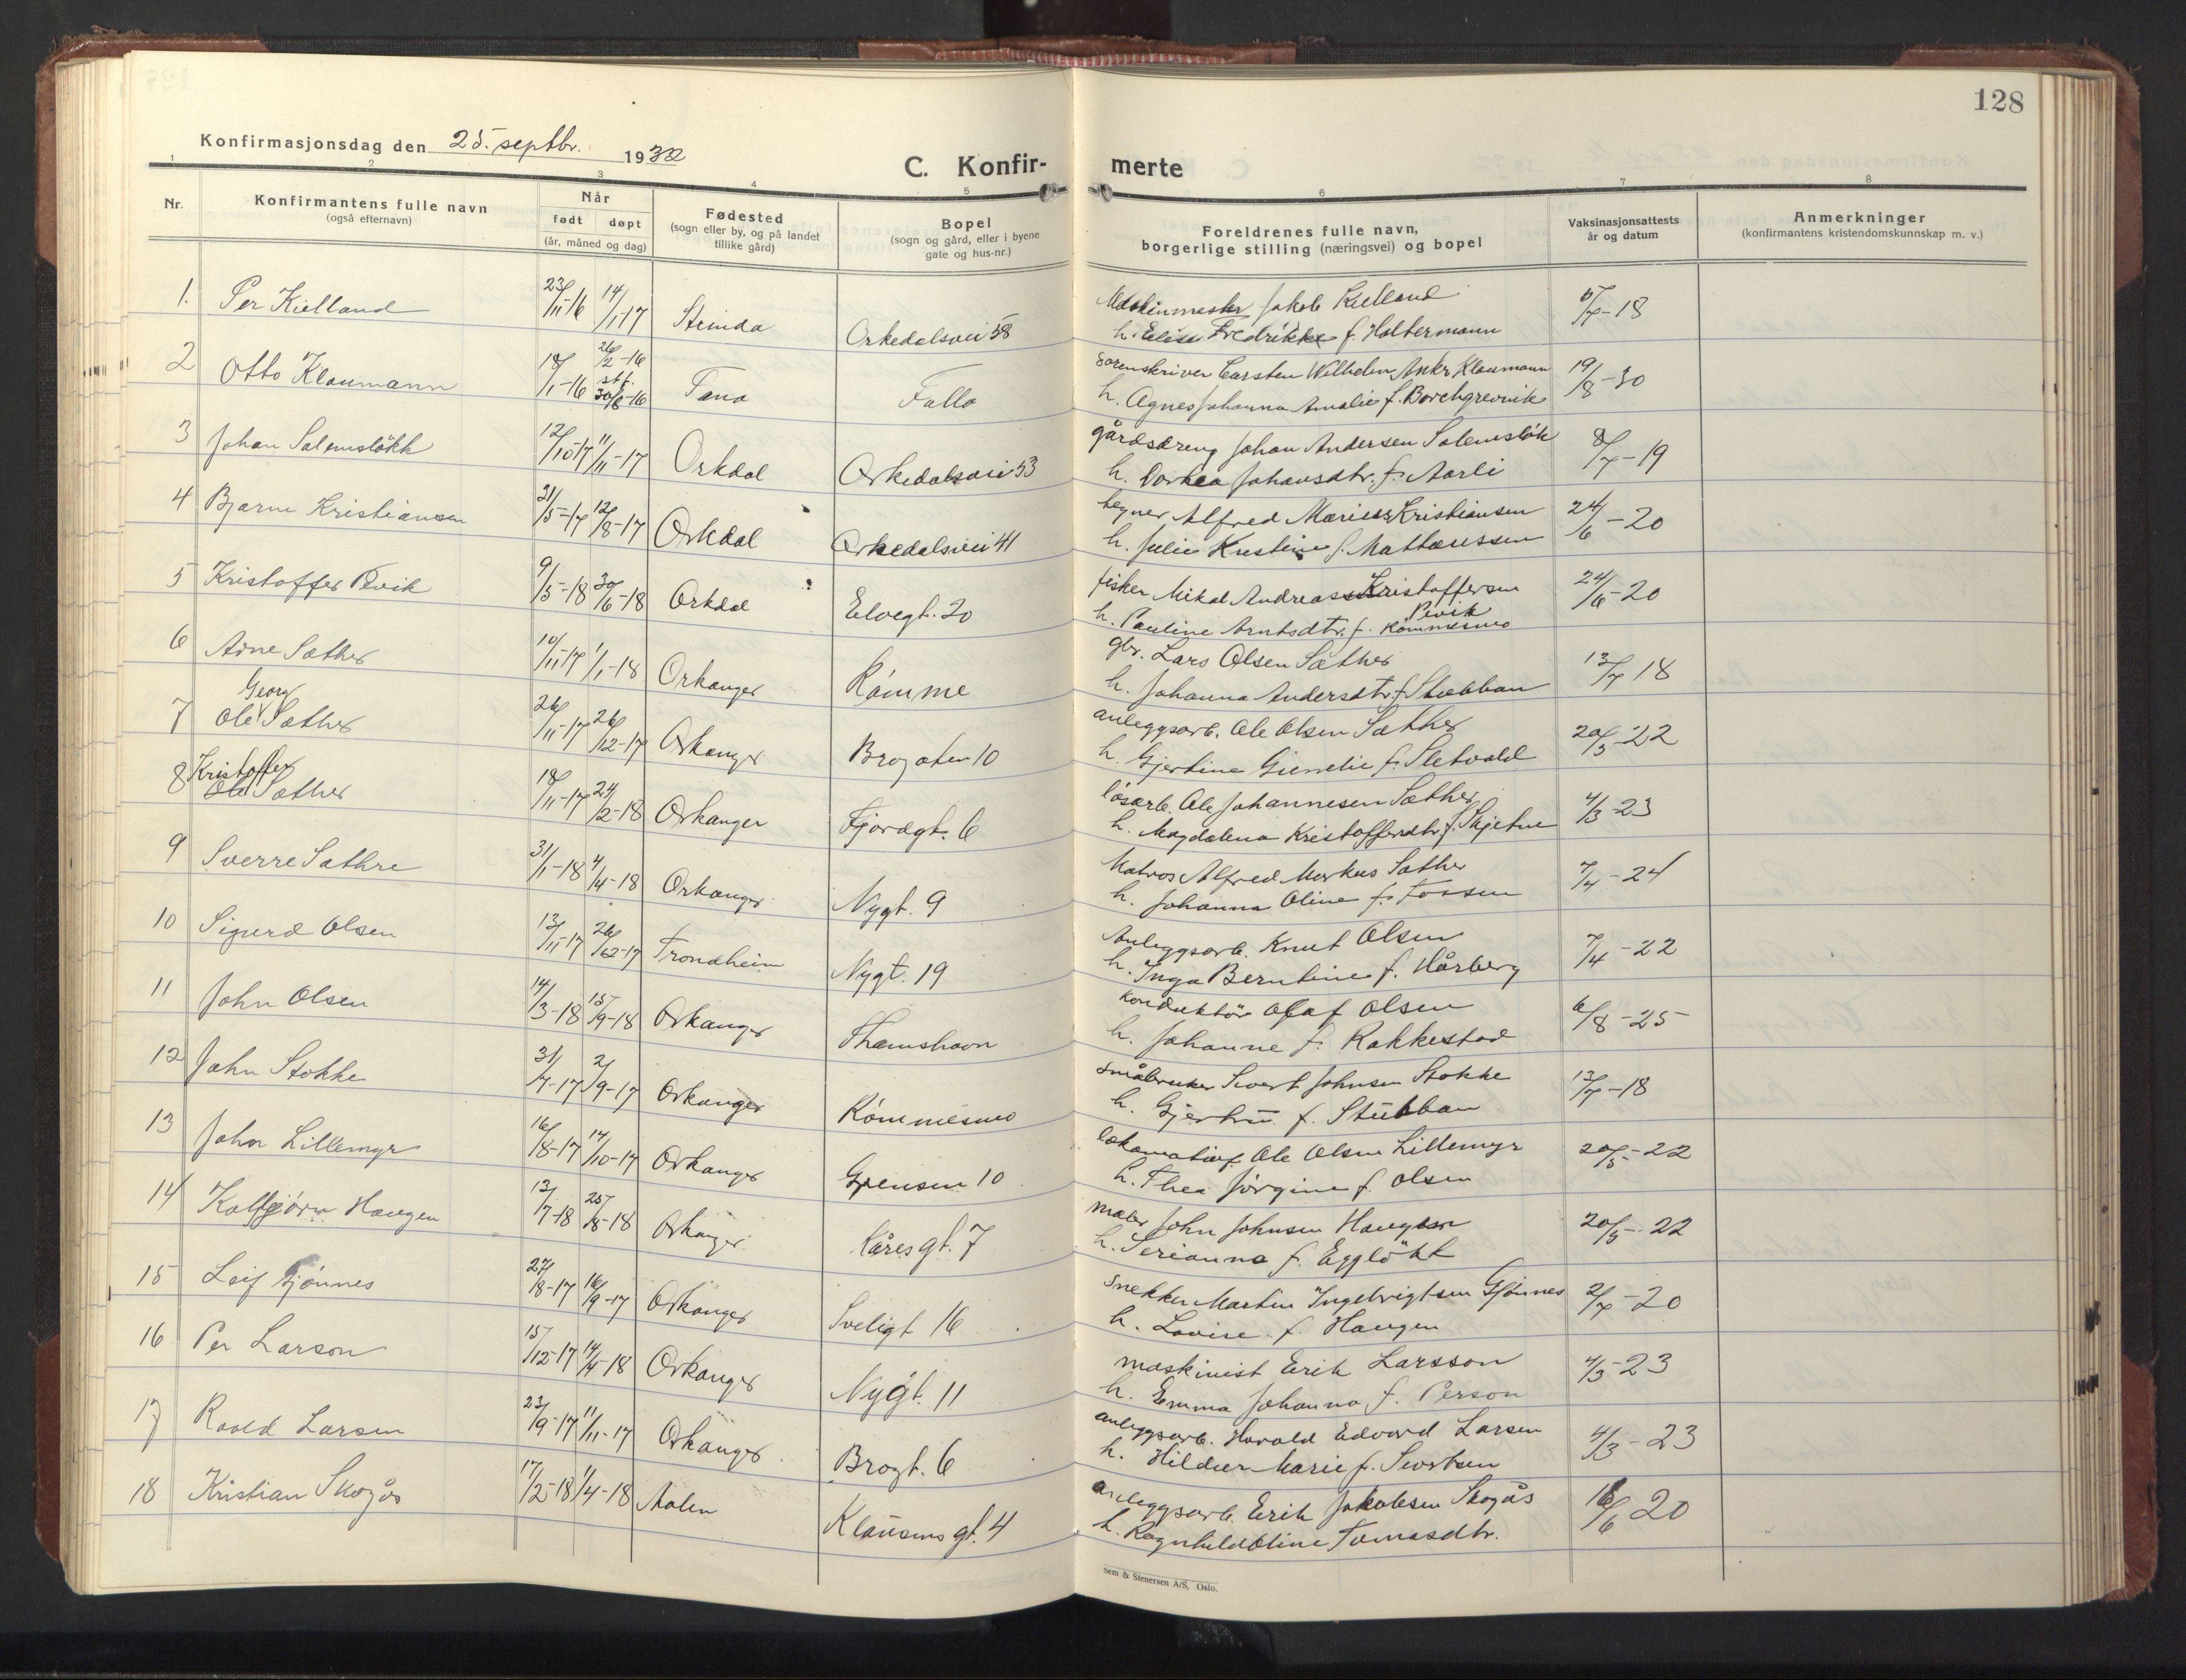 128
Konfirmasjonsdag den 25. septbr. 1932
C. Konfir- merte
1 2 3 4 5 6 7 8
Nr. Konfirmantens fulle navn (også efternavn) Når født døpt (år, måned og dag) Fødested (sogn eller by, og på landet tillike gård) Bopel (sogn og gård, eller i byene gate og hus-nr.) Foreldrenes fulle navn, borgerlige stilling (næringsvei) og bopel Vaksinasjonsattests år og datum Anmerkninger (konfirmantens kristendomskunnskap m. v.)
1. Per Kielland 23/11-16 14/1-17 Strinda Orkedalsvei 58 Maskinmester Jakob Kielland 5/7-18
h. Elise Fredrikke f. Haltermann
2 Otto Klaumann 18/1-16 26/2-16 stf. 30/8-16 Tana Follo Sorenskriver Carsten Wilhelm Ankr. Klaumann 19/8-30
h. Agnes Johanna Amalie f. Borchgrevink
3 Johan Salemsløkk 12/10-17 11/11-17 Orkdal Orkedalsvei 53 gårdsdreng Johan Andersen Solemsløk 8/7-19
h. Dorhea Johansdtr. f. Aarli
4 Bjarne Kristiansen 31/5-17 12/8-17 Orkdal Orkedalsvei 41 tegner Alfred Marius Kristiansen 24/6-20
h. Julie Kristine f. Mattæussen
5 Kristoffer Pevik 9/5-18 30/6-18 Orkdal Elvegt. 20 fisker Mikal Andreas Kristoffersen Pevik 24/6-20
h. Pauline Arntsdtr. f. Rømmesmo
6 Arne Sæther 10/11-17 1/1-18 Orkanger Rømme gbr. Lars Olsen Sæther 13/7 18
h. Johanna Andersdtr. f. Stubban
7 Ole Georg Sæther 26/11-17 26/12-17 Orkanger Brogaten 10 anleggsarb. Ole Olsen Sæther 20/5-22
h. Gjertine Gunelie f. Sletvold
8 Ole Kristoffer Sæther 18/11-17 24/2-18 Orkanger Fjordgt. 6 løsarb. Ole Johannesen Sæther 4/3-23
h. Magdalena Kristoffersdtr. f. Skjetne
9 Sverre Sæthre 31/1-18 4/4-18 Orkanger Nygt. 9 Matros Alfred Markus Sæther 7/4-24
h. Johanna Oline f. Fossen
10 Sigurd Olsen 13/11-17 26/12-17 Trondheim Nygt. 19 Anleggsarb. Knut Olsen 7/4-22
h. Inga Berntine f. Hårberg
11 John Olsen 14/3-18 15/9-18 Orkanger Thamshavn Konduktør Olaf Olsen 6/8-25
h. Johanne f. Rakkestad
12 John Stokke 31/7-17 2/9-17 Orkanger Rømmesmo Småbruker Sivert Johnsen Stokke 13/7-18
h. Gjertru f. Stubban
13 John Lillemyr 16/8-17 14/10-17 Orkanger Grensen 10 lokomotivf. Ole Olsen Lillemyr 20/5-22
h. Thea Jørgine f. Olsen
14 Kolbjørn Haugen 13/7-18 25/8-18 Orkanger Kåresgt. 7 maler John Johnsen Haugen 20/5-22
h. Serianna f. Eggløkk
15 Leif Gjønnes 27/8-17 16/9-17 Orkanger Soeligt 16 Snekker Martin Ingebrigtsen Gjønnes 2/7-20
h. Lovise f. Haugen
16 Per Larson 15/12-17 14/4-18 Orkanger Nygt. 11 maskinist Erik Larsson 4/3-23
h. Emma Johanna f. Person
17 Roald Larsen 23/9-17 11/11-17 Orkanger Brogt. 6 anleggsarb. Harald Edvard Larsen 4/3-23
h. Hildur Marie f. Sivertsen
18 Kristian Skogås 17/2-18 1/4-18 Aalen Klausens gt. 4 anleggsarb. Erik Jakobsen Skogås 16/6 20
h. Ragnhild Oline Tomasdtr.
Sem & Stenersen A/S, Oslo.